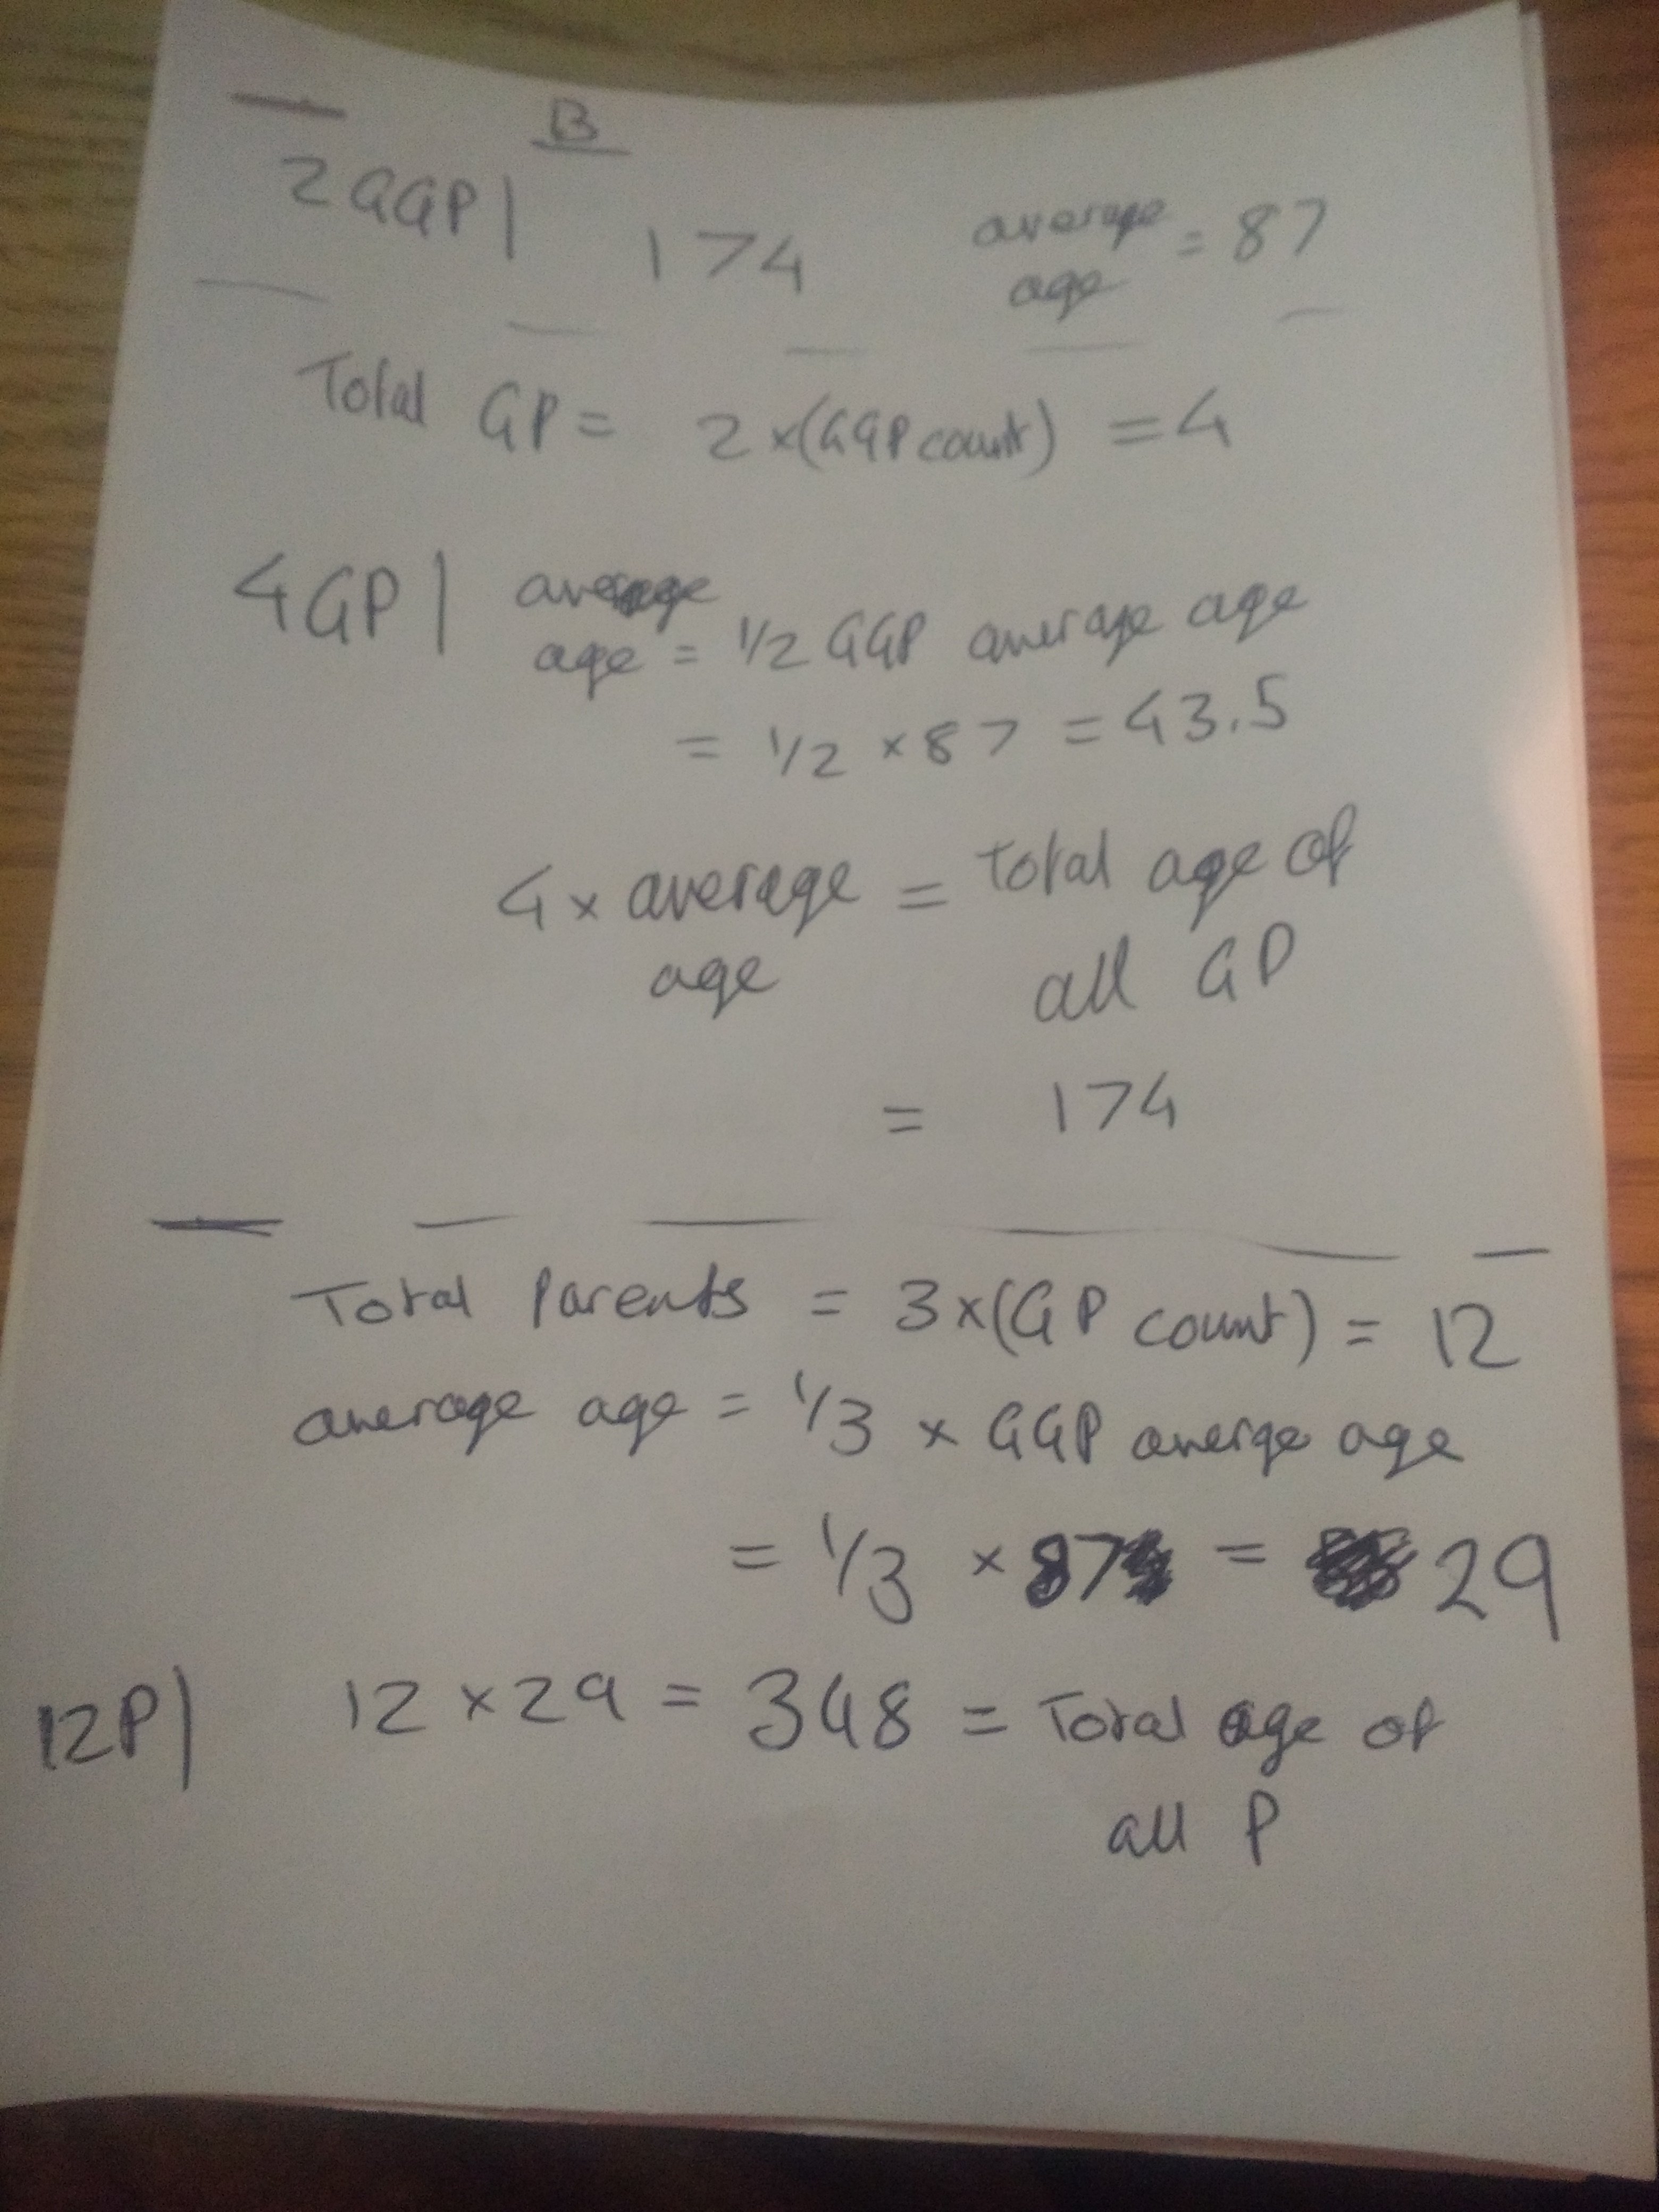 B
2GGP| 174 average age = 87
Total GP = 2 x (GGP count) = 4
4GP| average
age = 1/2 GGP average age
= 1/2 x 87 = 43.5
4 x average age = total age of all GP
= 174
Total Parents = 3x(GP count) = 12
average age = 1/3 x GGP averge age
= 1/3 x 87 = 29
12P| 12 x 29 = 348 = Total age of
all P